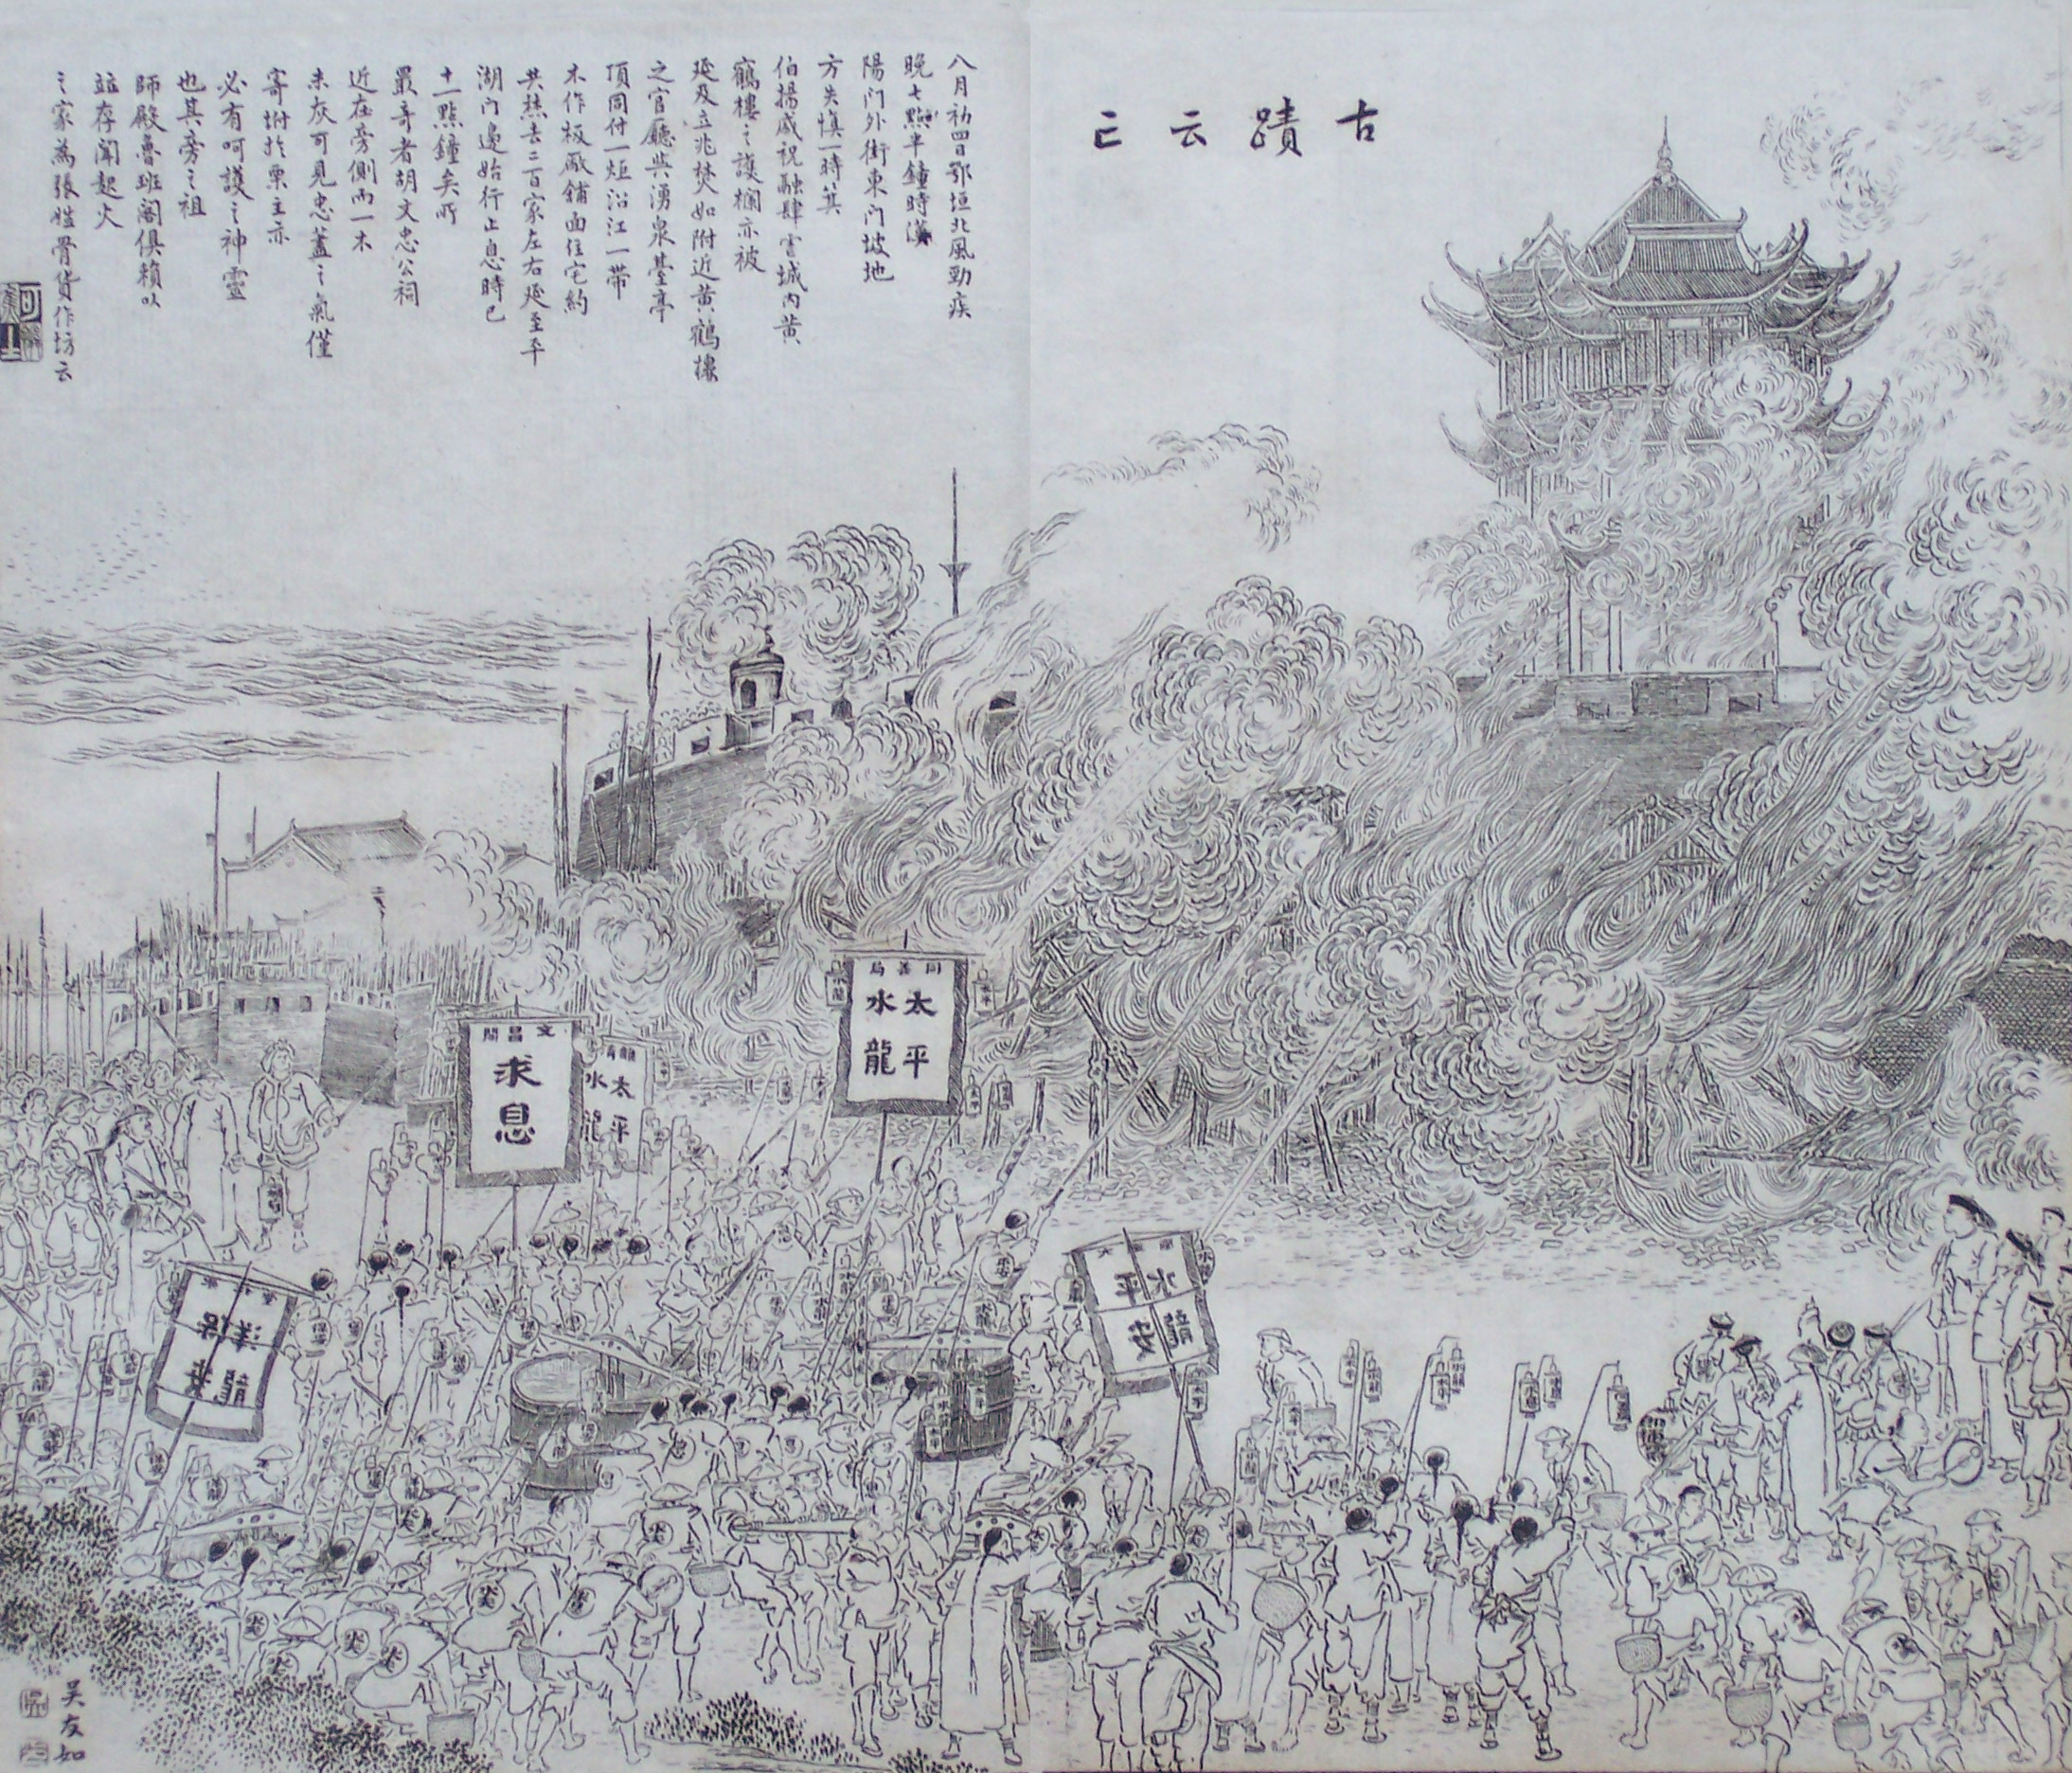 古蹟云亡
八月初四日鄂垣北風勁疾
晚七點半鐘時漢
陽門外街東門坡地
方失愼一時箕
伯揚威祝融肆虐城內黃
鶴樓之護欄亦被
延及立兆焚如附近黃鶴樓
之官廳與湧泉臺亭
頂同付一炬沿江一帶
木作板廠舖面住宅約
共熱去二百家左右延至平
湖門邊始行止息時已
十一點鐘矣所
最奇者胡文忠公祠
近在旁側而一木
未灰可見忠藎之氣僅
寄坿於栗主亦
必有呵護之神靈
也其旁之祖
師殿魯班閣俱賴以
竝存聞起火
之家爲張姓骨貨作坊云
同善局
太平
水龍
文昌閣
求息
太平
水龍
水龍
平安
洋龍
吳友如